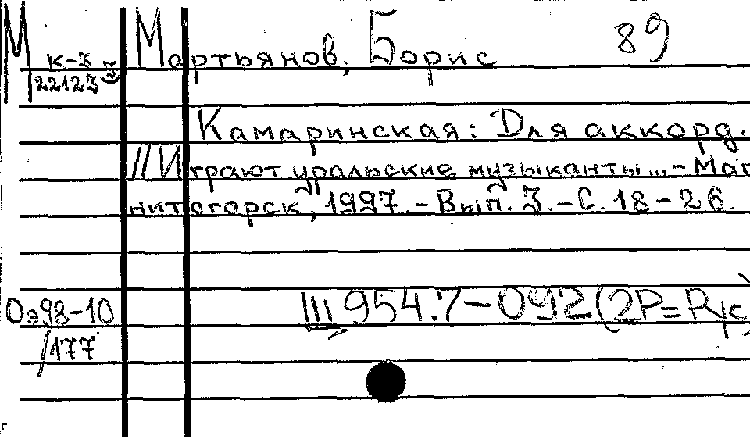 М Мартьянов, Борис 89
к-3
22123
Камаринская: Для аккорд.
//Играют уральские музыканты...-Маг
нитогорск, 1997.-Вып. 3.-С. 18-26.
Оэ98-10
/177
III 954.7-092(2Р=Рус)